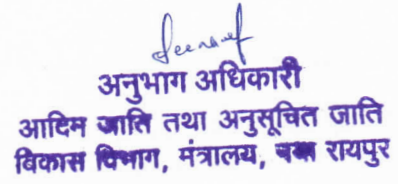 अनुभाग अधिकारी
आदिम जाति तथा अनुसूचित जाति
विकास विभाग, मंत्रालय, नया रायपुर